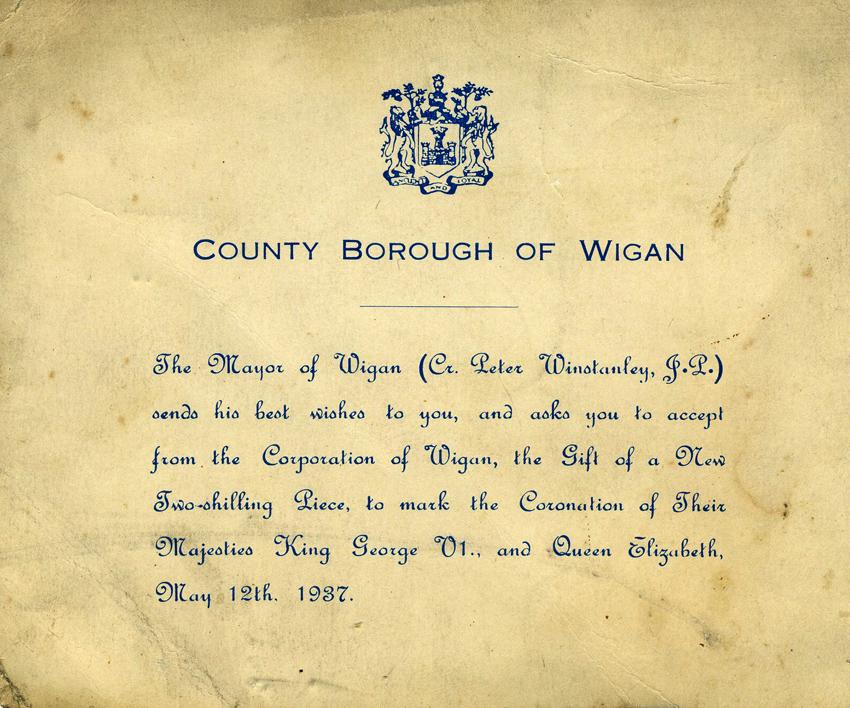 ANCIENT AND LOYAL
COUNTY BOROUGH OF WIGAN
The Mayor of Wigan (Cr. Peter Winstanley, J.P.)
sends his best wishes to you, and asks you to accept
from the Corporation of Wigan, the Gift of a New
Two-shilling Piece, to mark the Coronation of Their
Majesties King George V1., and Queen Elizabeth,
May 12th. 1937.